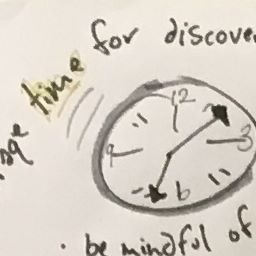 time for discove
12
9 3
6
• be mindful of